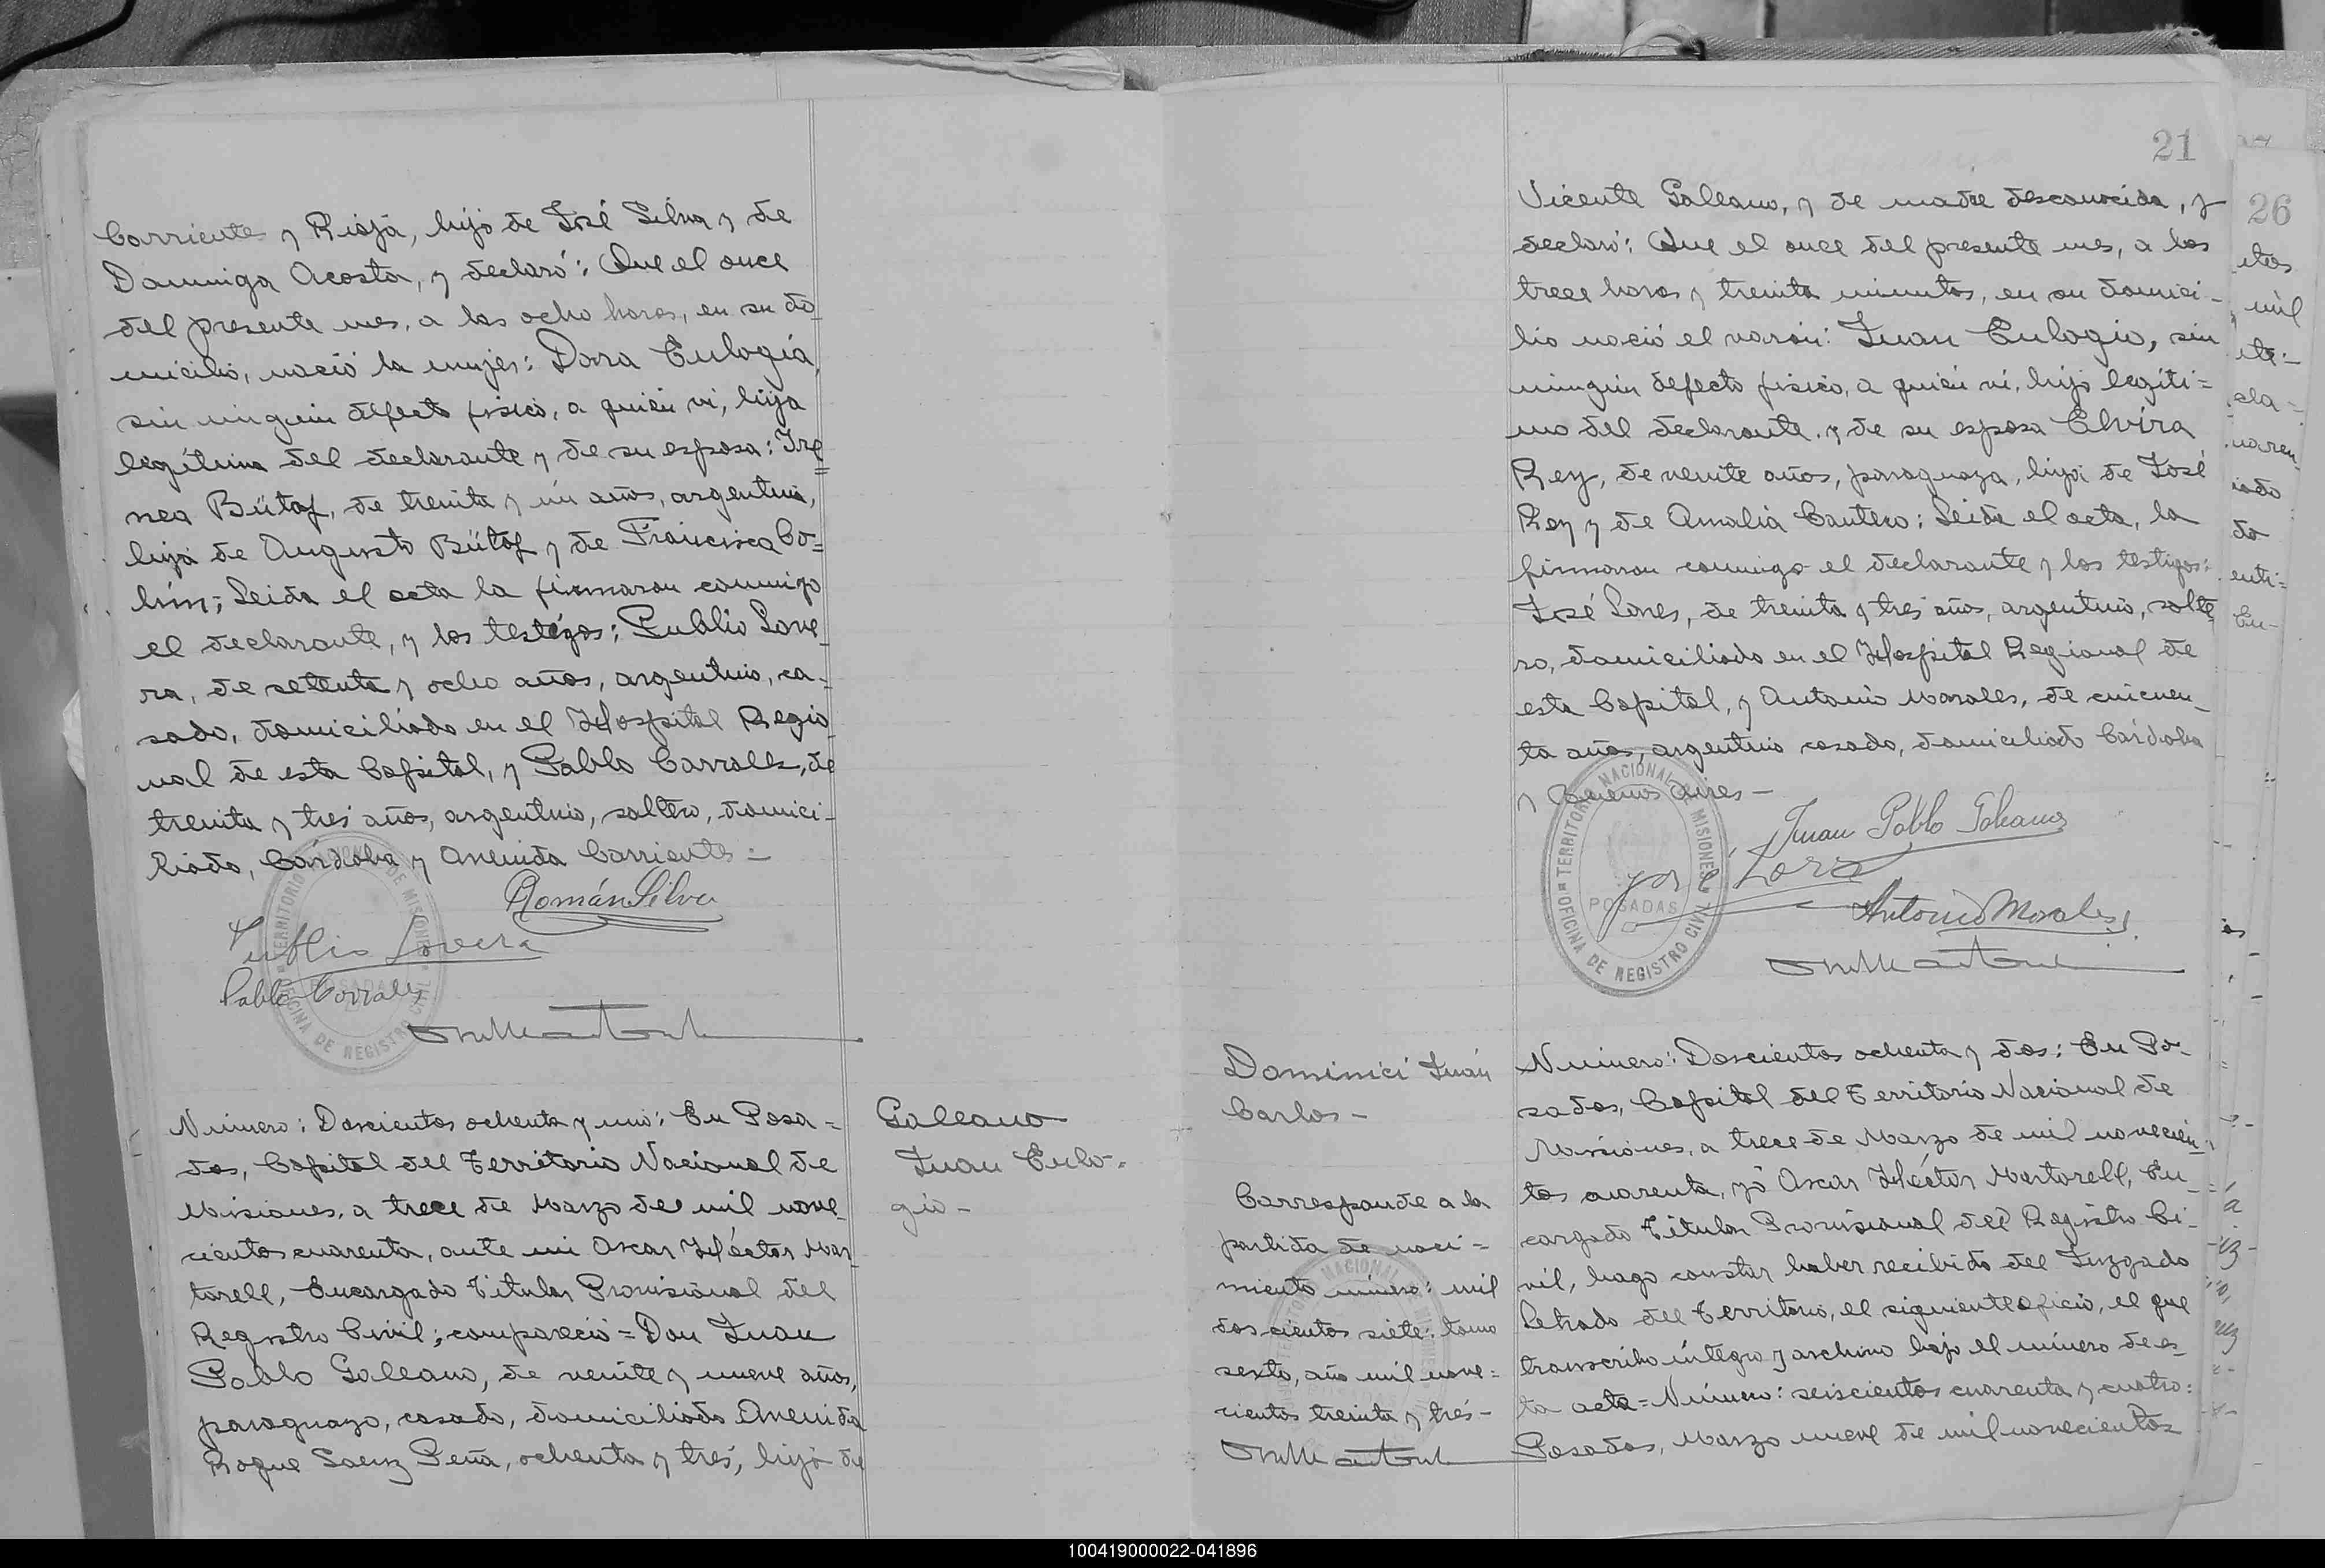 Corrientes y Rioja, hijo de José Silva y de
Dominga Acosta, y declaró: Que el once
del presente mes, a las ocho horas, en su do
micilio, nació la mujer: Dora Eulogia,
sin ningún defecto físico, a quién vi, hija
legítima del declarante y de su esposa: Ire=
nea Bütof, de treinta y un años, argentina,
hija de Augusto Bütof y de Francisca Co=
lín; Leida el acta la firmaron conmigo
el declarante, y los testigos: Publio Love_
ra, de setenta y ocho años, argentino, ca-
sado, domiciliado en el Hospital Regio
nal de esta Capital, y Pablo Corrales, de
treinta y tres años, argentino, soltero, domici-
liado, Córdoba y Avenida Corrientes =
Román Silva
Publio Lovera
Pablo Corrales
TERRITORIO NACIONAL DE MISIONES
POSADAS
OFICINA DE REGISTRO CIVIL
Número: Doscientos ochenta y uno: En Posa=
das, Capital del Territorio Nacional de
Misiones, a trece de Marzo de mil nove_
cientos cuarenta, ante mi Oscar Héctor Mar
torell, Encargado Titular Provisional del
Registro Civil; compareció = Don Juan
Pablo Galeano, de veinte y nueve años,
paraguayo, casado, domiciliado Avenida
Roque Saenz Peña, ochenta y tres, hijo de
Galeano
Juan Eulo-
gio -
21
Vicente Galeano, y de madre desconocida, y
declaró: Que el once del presente mes, a las
trece horas y treinta minutos, en su domici-
lio nació el varón: Juan Eulogio, sin
ningún defecto físico, a quién vi, hijo legíti=
mo del declarante y de su esposa Elvira
Rey, de veinte años, paraguaya, hija de José
Rey y de Amalia Cantero: Leida el acta, la
firmaron conmigo el declarante y los testigos:
José Lores, de treinta y tres años, argentino, solte
ro, domiciliado en el Hospital Regional de
esta Capital, y Antonio Morales, de cincuen_
ta años, argentino casado, domiciliado Córdoba
y Buenos Aires -
Juan Pablo Galeano
José
Antonio Morales
TERRITORIO NACIONAL DE MISIONES
POSADAS
OFICINA DE REGISTRO CIVIL
Dominici Juan
Carlos -
Corresponde a la
partida de naci=
miento número: mil
doscientos siete: tomo
sexto, año mil nove=
cientos treinta y tres -
Número: Doscientos ochenta y dos: En Po-
sadas, Capital del Territorio Nacional de
Misiones, a trece de Marzo de mil novecien-
tos cuarenta, yó Oscar Héctor Martorell, En_
cargado Titular Provisional del Registro Ci-
vil, hago constar haber recibido del Juzgado
Letrado del Territorio, el siguiente oficio, el que
transcribo íntegro y archivo bajo el número de es_
ta acta = Número: seiscientos cuarenta y cuatro:
Posadas, Marzo nueve de mil novecientos
26
mil
100419000022-041896